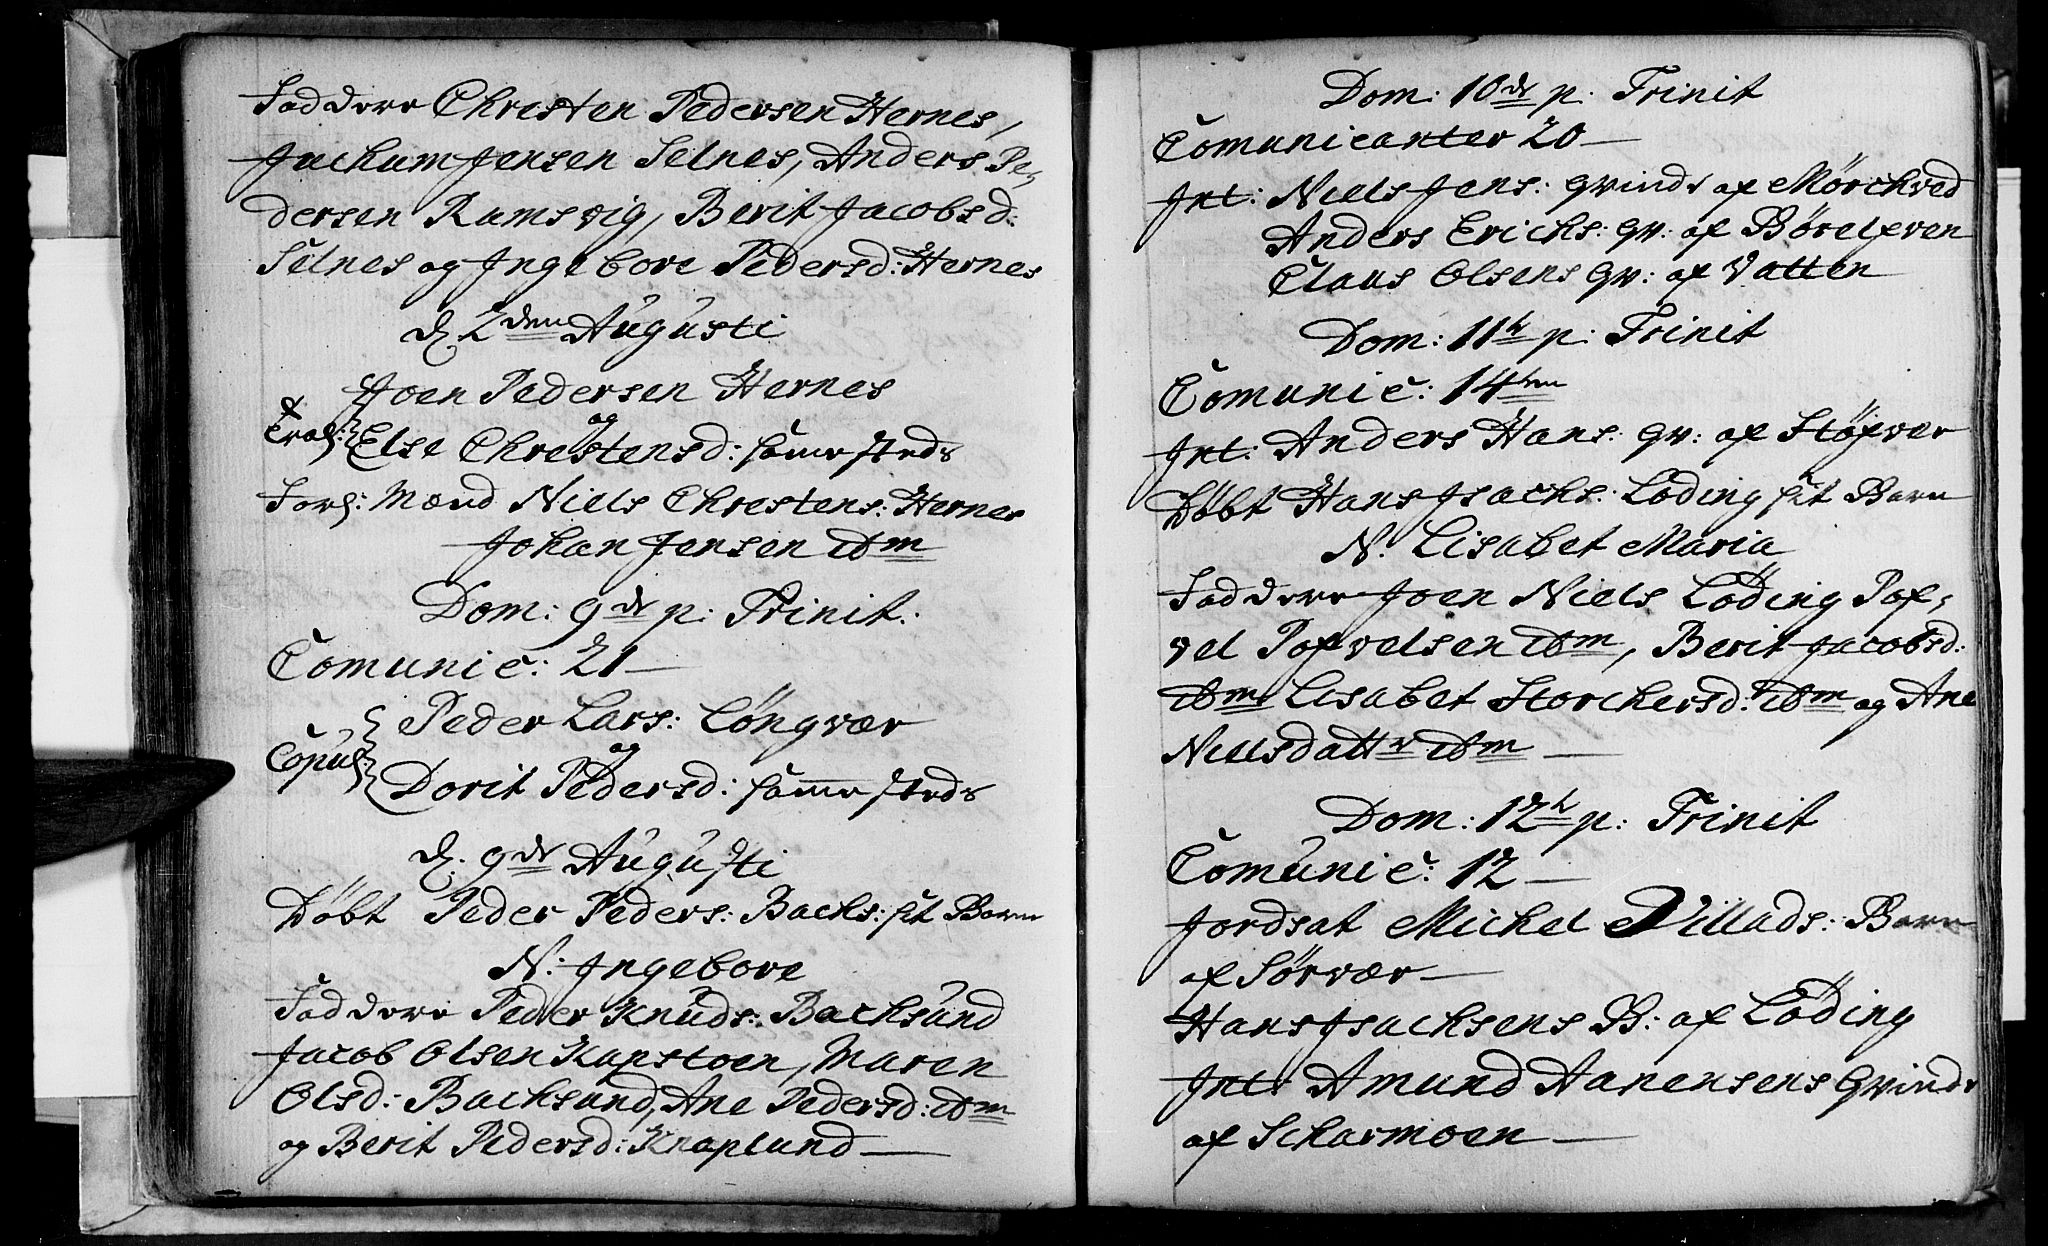 Faddere Christen Pedersen Hernes,
Jachum Jensen Selnes, Anders Pe-
dersen Ramsvig, Berit Jacobsd:
Selnes og Ingebore Pedersd: Hernes
d. 2den Augusti
Joen Pedersen Hernes
og
Trol: Else Chrestensd: samesteds
Forl: Mænd Niels Chrestens: Hernes
Johan Jensen ibm
Dom: 9de p: Trinit:
Comunic: 21
Peder Lars: Löngvær
og
Copul: Dorit Pedersd: samme steds
d. 9de Augusti
Döbt Peder Peders: Backs: sit Barn
N: Ingebore
Faddere Peder Knuds: Backsund
Jacob Olsen Kapstoen, Maren
Olsd: Backsund, Ane Pedersd: ibm
og Berit Pedersd: Knaplund
Dom: 10de p: Trinit
Comunicanter 20
Int: Niels Jens: Qvinde af Mörchved
Anders Erichs: qv: af Börelfven
Claus Olsens Qv: af Vatten
Dom: 11te p: Trinit
Comunic: 14ten
Int: Anders Hans: qv: af Stöfvær
Döbt Hans Isachs: Löding sit Barn
N. Lisabet Maria
Faddere Joen Niels Löding Pof-
vel Pofvelsen ibm, Berit Jacobsd:
ibm Lisabet Storchersd: ibm og Ane
Nielsdattr ibm
Dom: 12te p: Trinit
Comunic: 12
Jordsat Michel Villads: Barn
af Sörvær
Hans Isachsens B: af Löding
Int: Amund Aanensens Qvinde
af Scharmoen